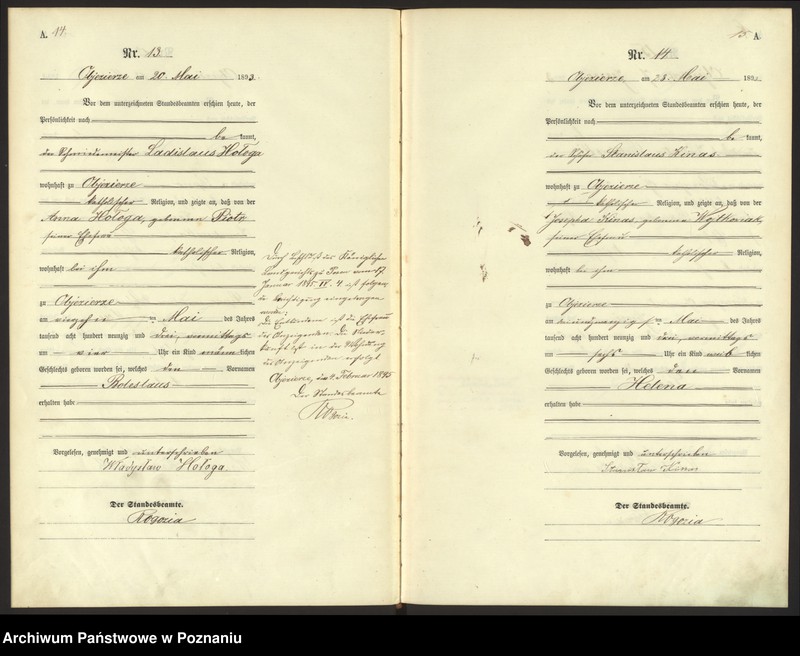 A. 14
Nr. 13.
Objezierze am 20. Mai 1893.
Vor dem unterzeichneten Standesbeamten erschien heute, der
Persönlichkeit nach
be kannt,
der Schmiedemeister Ladislaus Hołoga
wohnhaft zu Objezierze
katholischer Religion, und zeigte an, daß von der
Anna Hologa, geborenen
seiner Ehefrau
katholischer Religion,
wohnhaft bei ihm
zu Objezierze
am vierzehn ten Mai des Jahres
tausend acht hundert neunzig und drei, vormittags
um vier Uhr ein Kind männ lichen
Geschlechts geboren worden sei, welches den Vornamen
Boleslaus
erhalten habe
Vorgelesen, genehmigt und unterschrieben
Władysław Hołoga.
Der Standesbeamte.
Rogozia
Durch Beschluß des Königlichen
Landgerichtes Posen vom 17
Januar 1895 IV. 4 ist folgende
Berichtigung eingetragen
worden:
Die Entbundene ist die Ehefrau
des Anzeigenden. Die Nieder-
kunft ist in der Wohnung
des Anzeigenden erfolgt
Objezierze, den 4. Februar 1895
Der Standesbeamte
Rogozia.
15 A
Nr. 14
Objezierze am 23. Mai 189
Vor dem unterzeichneten Standesbeamten erschien heute, der
Persönlichkeit nach
be kannt,
der Stanislaus Kinas
wohnhaft zu Objezierze
katholischer Religion, und zeigte an, daß von der
Josepha Kinas, geborenen
seiner Ehefrau
katholischer Religion,
wohnhaft bei ihm
zu Objezierze
am ten Mai des Jahres
tausend acht hundert neunzig und drei, vormittags
um sechs Uhr ein Kind weib lichen
Geschlechts geboren worden sei, welches den Vornamen
Helena
erhalten habe
Vorgelesen, genehmigt und unterschrieben
Stanisław Kinas
Der Standesbeamte.
Rogozia
Archiwum Państwowe w Poznaniu